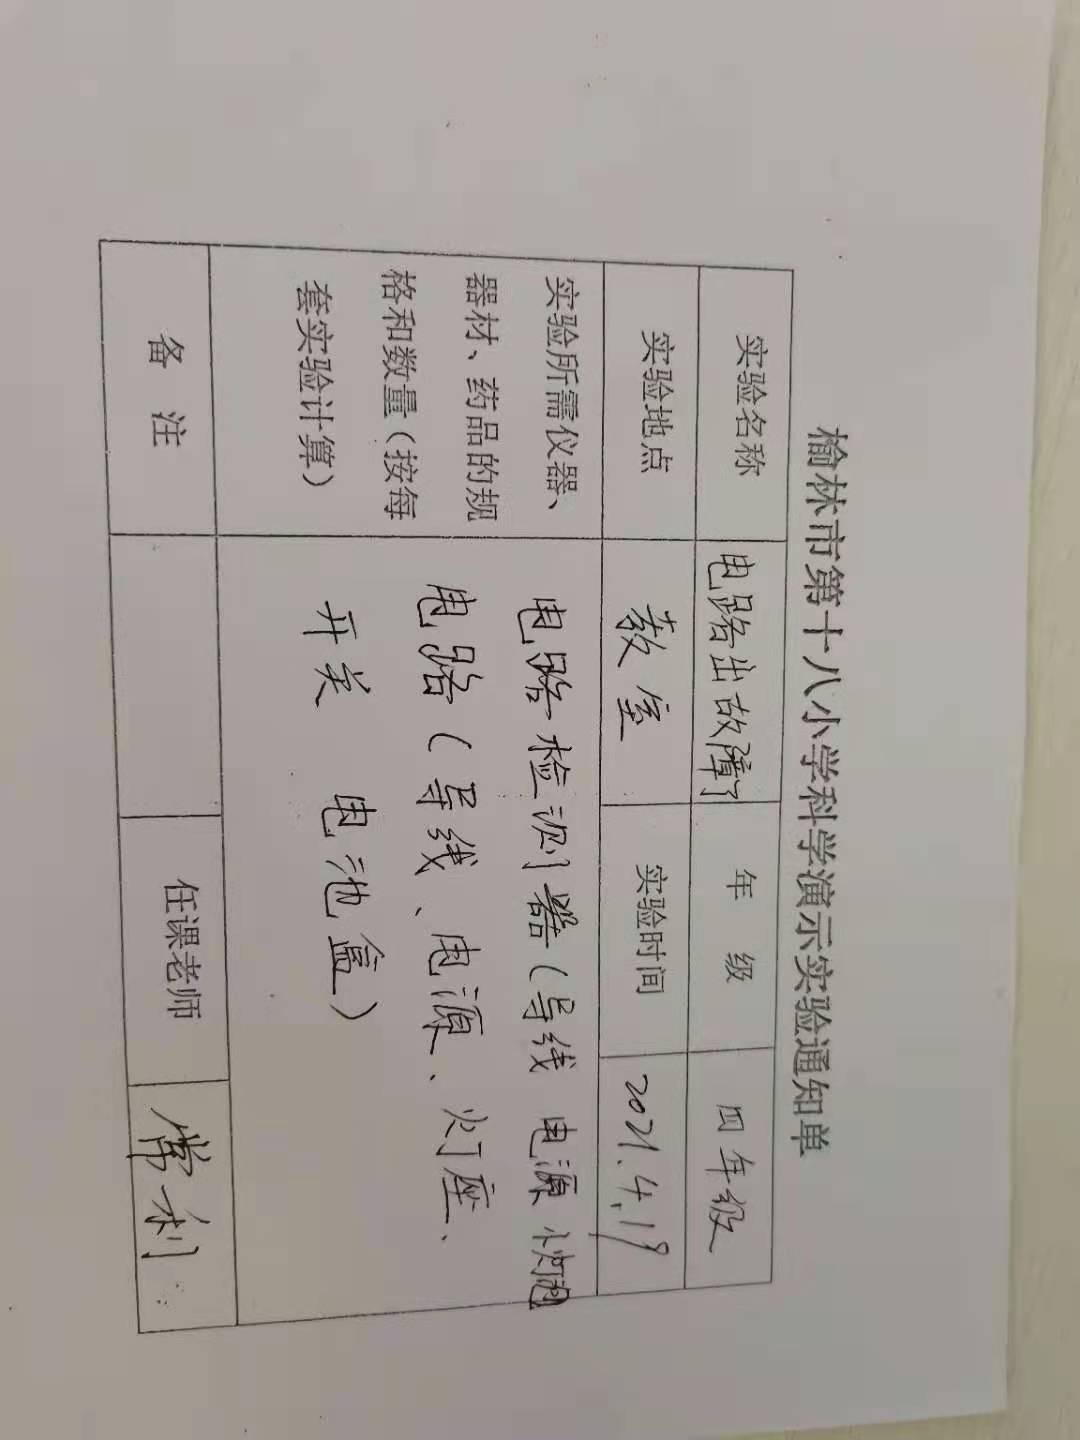 榆林市第十八小学科学演示实验通知单
实验名称 电路出故障了 年 级 四年级
实验地点 教室 实验时间 2021.4.19
实验所需仪器、
器材、药品的规
格和数量（按每
套实验计算）
电路检测器（导线 电源 小灯泡
电路（导线、电源、灯座、
开关 电池盒）
备 注 任课老师 常利